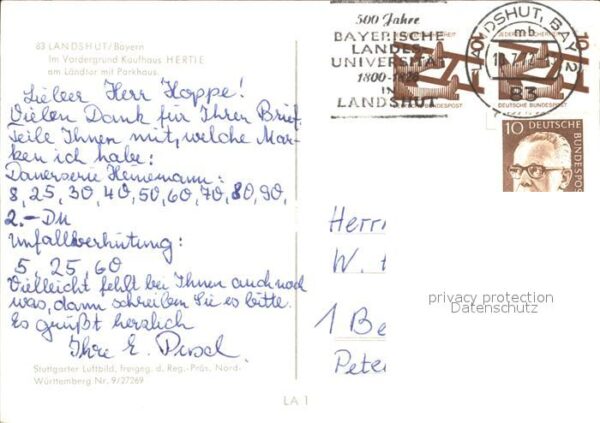 83 LANDSHUT/Bayern
Im Vordergrund Kaufhaus HERTIE
am Ländtor mit Parkhaus
Lieber Herr Hoppe!
Vielen Dank für Ihren Brief,
teile Ihnen mit, welche Mar-
ken ich habe:
Dauerserie Heinemann:
8, 25, 30, 40, 50, 60, 70, 80, 90,
2.- DM
Unfallverhütung:
5, 25, 60
Vielleicht fehlt bei Ihnen auch noch
was, dann schreiben Sie es bitte.
Es grüßt herzlich
Ihre E.
Stuttgarter Luftbild, freigng. d. Reg.-Präs. Nord-
Württemberg Nr. 9/27269
LA 1
500 Jahre
BAYERISCHE
LANDES-
UNIVERSITÄT
1800-1826
IN
LANDSHUT
LANDSHUT, BAY 2
mb
83
10
DEUTSCHE BUNDESPOST
DEUTSCHE BUNDESPOST
10 DEUTSCHE
BUNDESPOS
Herrn
W.
1 Be
Pete
privacy protection
Datenschutz